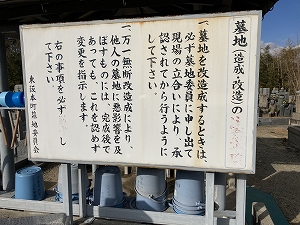 墓地(造成・改造)の
一、墓地を改造成するときは、
必ず墓地委員に申し出て
現場の立合いにより、承
認されてから行うように
して下さい。
一、万一無断改造成により、
他人の墓地に悪影響を及
ぼすものには、完成後で
あっても、これを認めず
変更を指示します。
右の事項を必ず し
て下さい。
東坂本町墓地委員会